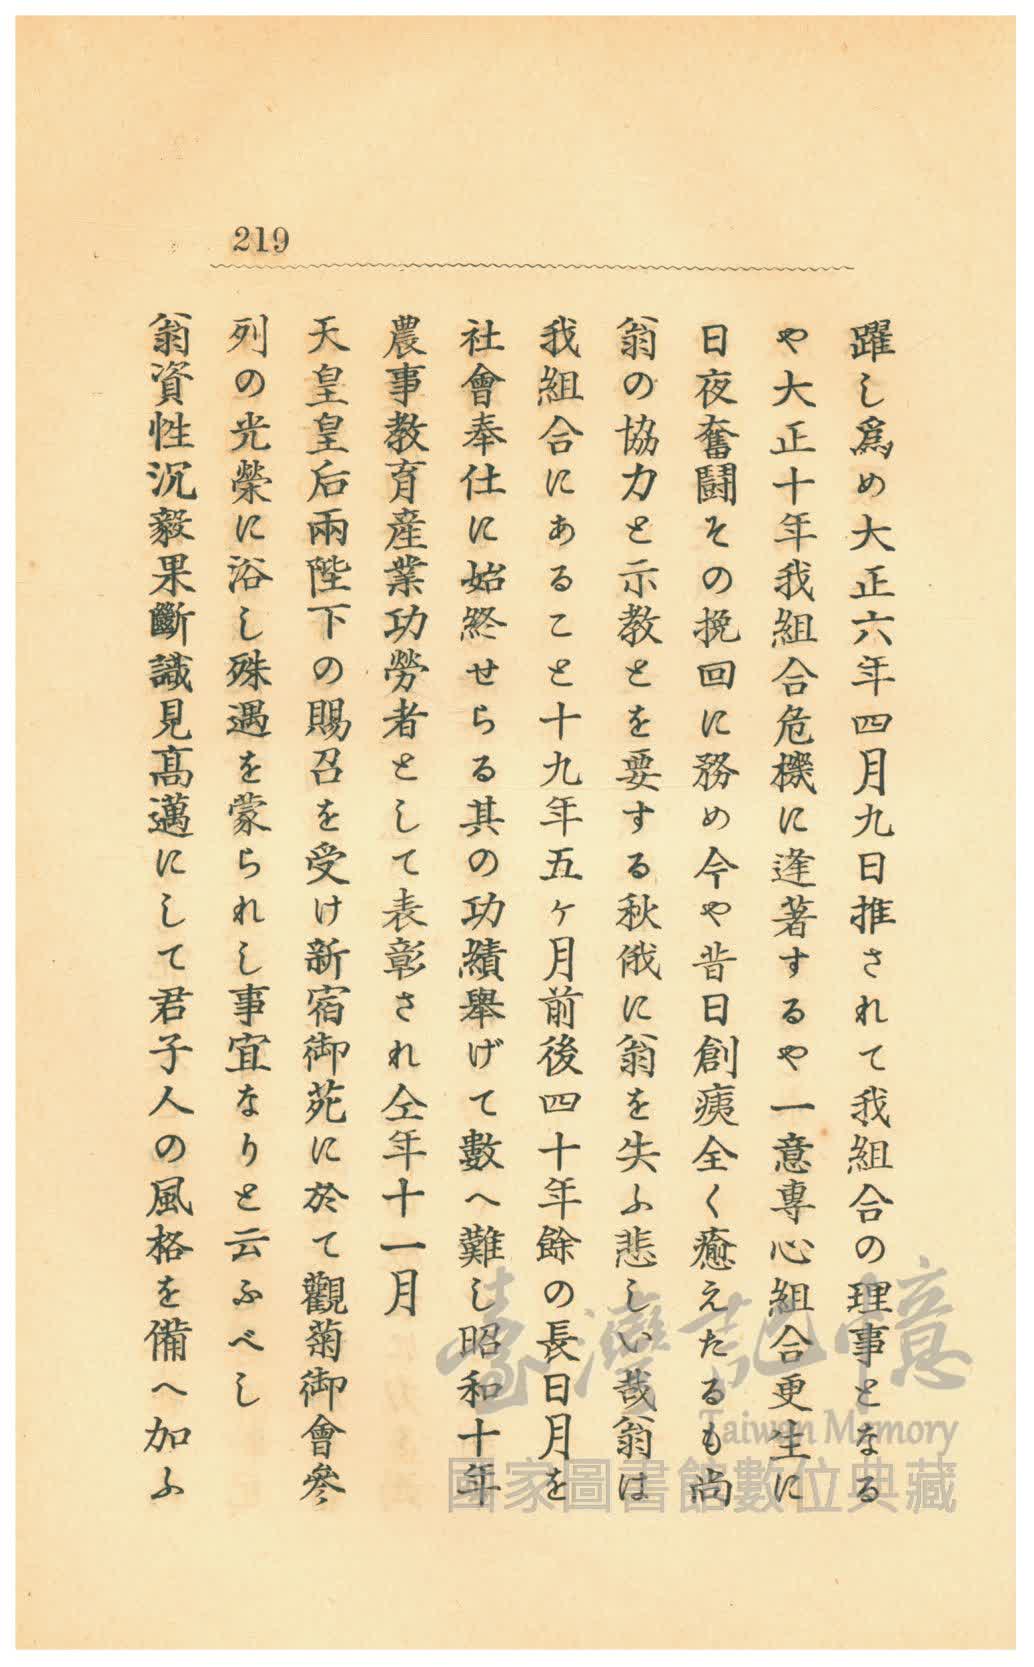 219
躍し爲め大正六年四月九日推されて我組合の理事となる
や大正十年我組合危機に逢著するや一意專心組合更生に
日夜奮鬪その挽回に務め今や昔日創痍全く癒えたるも尚
翁の協力と示教とを要する秋俄に翁を失ふ悲しい哉翁は
我組合にあること十九年五ヶ月前後四十年餘の長日月を
社會奉仕に始終せらる其の功績擧げて數へ難し昭和十年
農事教育産業功勞者として表彰され仝年十一月
天皇皇后兩陛下の賜召を受け新宿御苑に於て觀菊御會參
列の光榮に浴し殊遇を蒙られし事宜なりと云ふべし
翁資性沉毅果斷識見高邁にして君子人の風格を備へ加ふ
臺灣記憶
Taiwan Memory
國家圖書館數位典藏